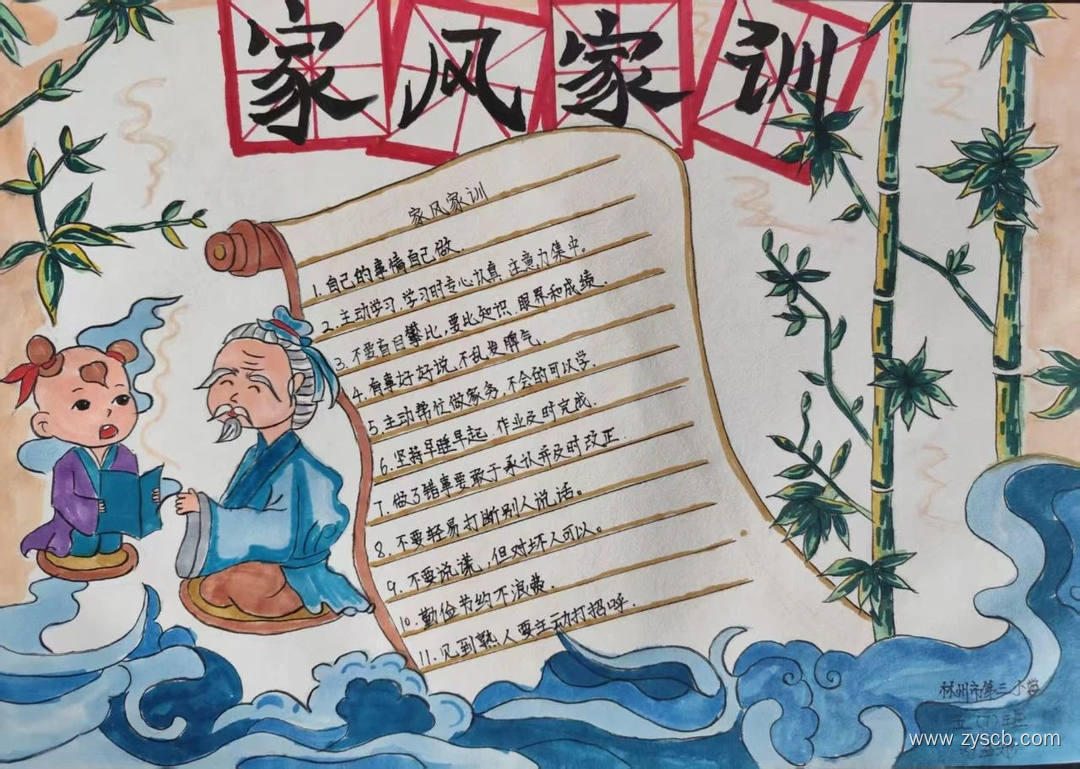 家风家训
家风家训
1.自己的事情自己做.
2.主动学习,学习时专心认真,注意力集中。
3.不要盲目攀比,要比知识、眼界和成绩.
4.有事好好说,不乱发脾气.
5.主动帮忙做家务,不会的可以学.
6.坚持早睡早起.作业及时完成.
7.做了错事要敢于承认并及时改正.
8.不要轻易打断别人说话。
9.不要说谎,但对坏人可以。
10.勤俭节约不浪费.
11.见到熟人要主动打招呼.
林州市第三小学
五(7)班
www.zyscb.com